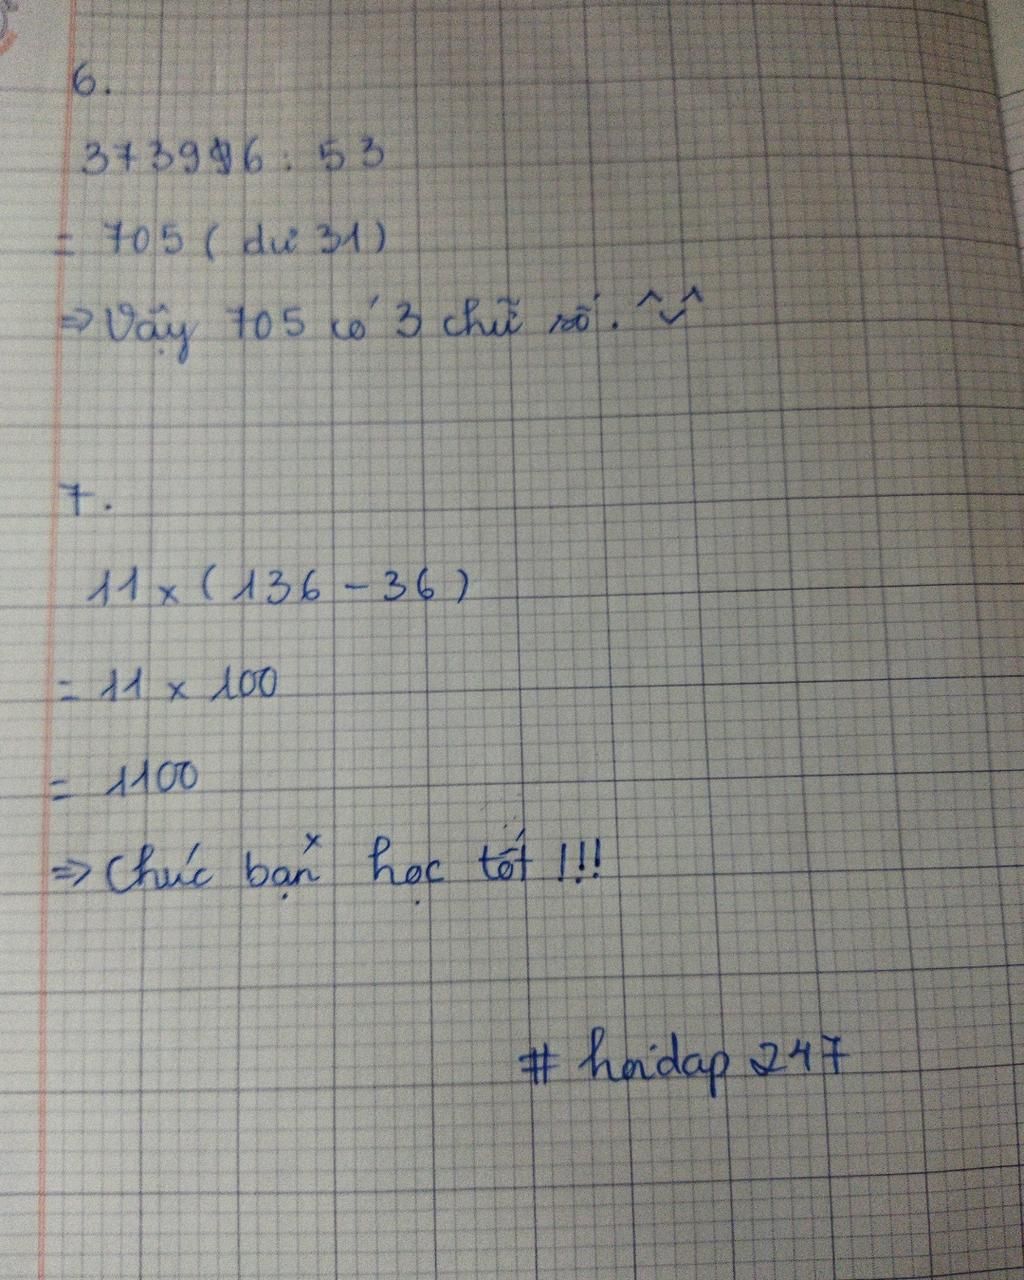 6.
373996 : 53
= 705 ( dư 31)
=> Vậy 705 có 3 chữ số. ^v^
7.
11 x ( 136 - 36 )
= 11 x 100
= 1100
=> Chúc bạn học tốt !!!
# hoidap 247